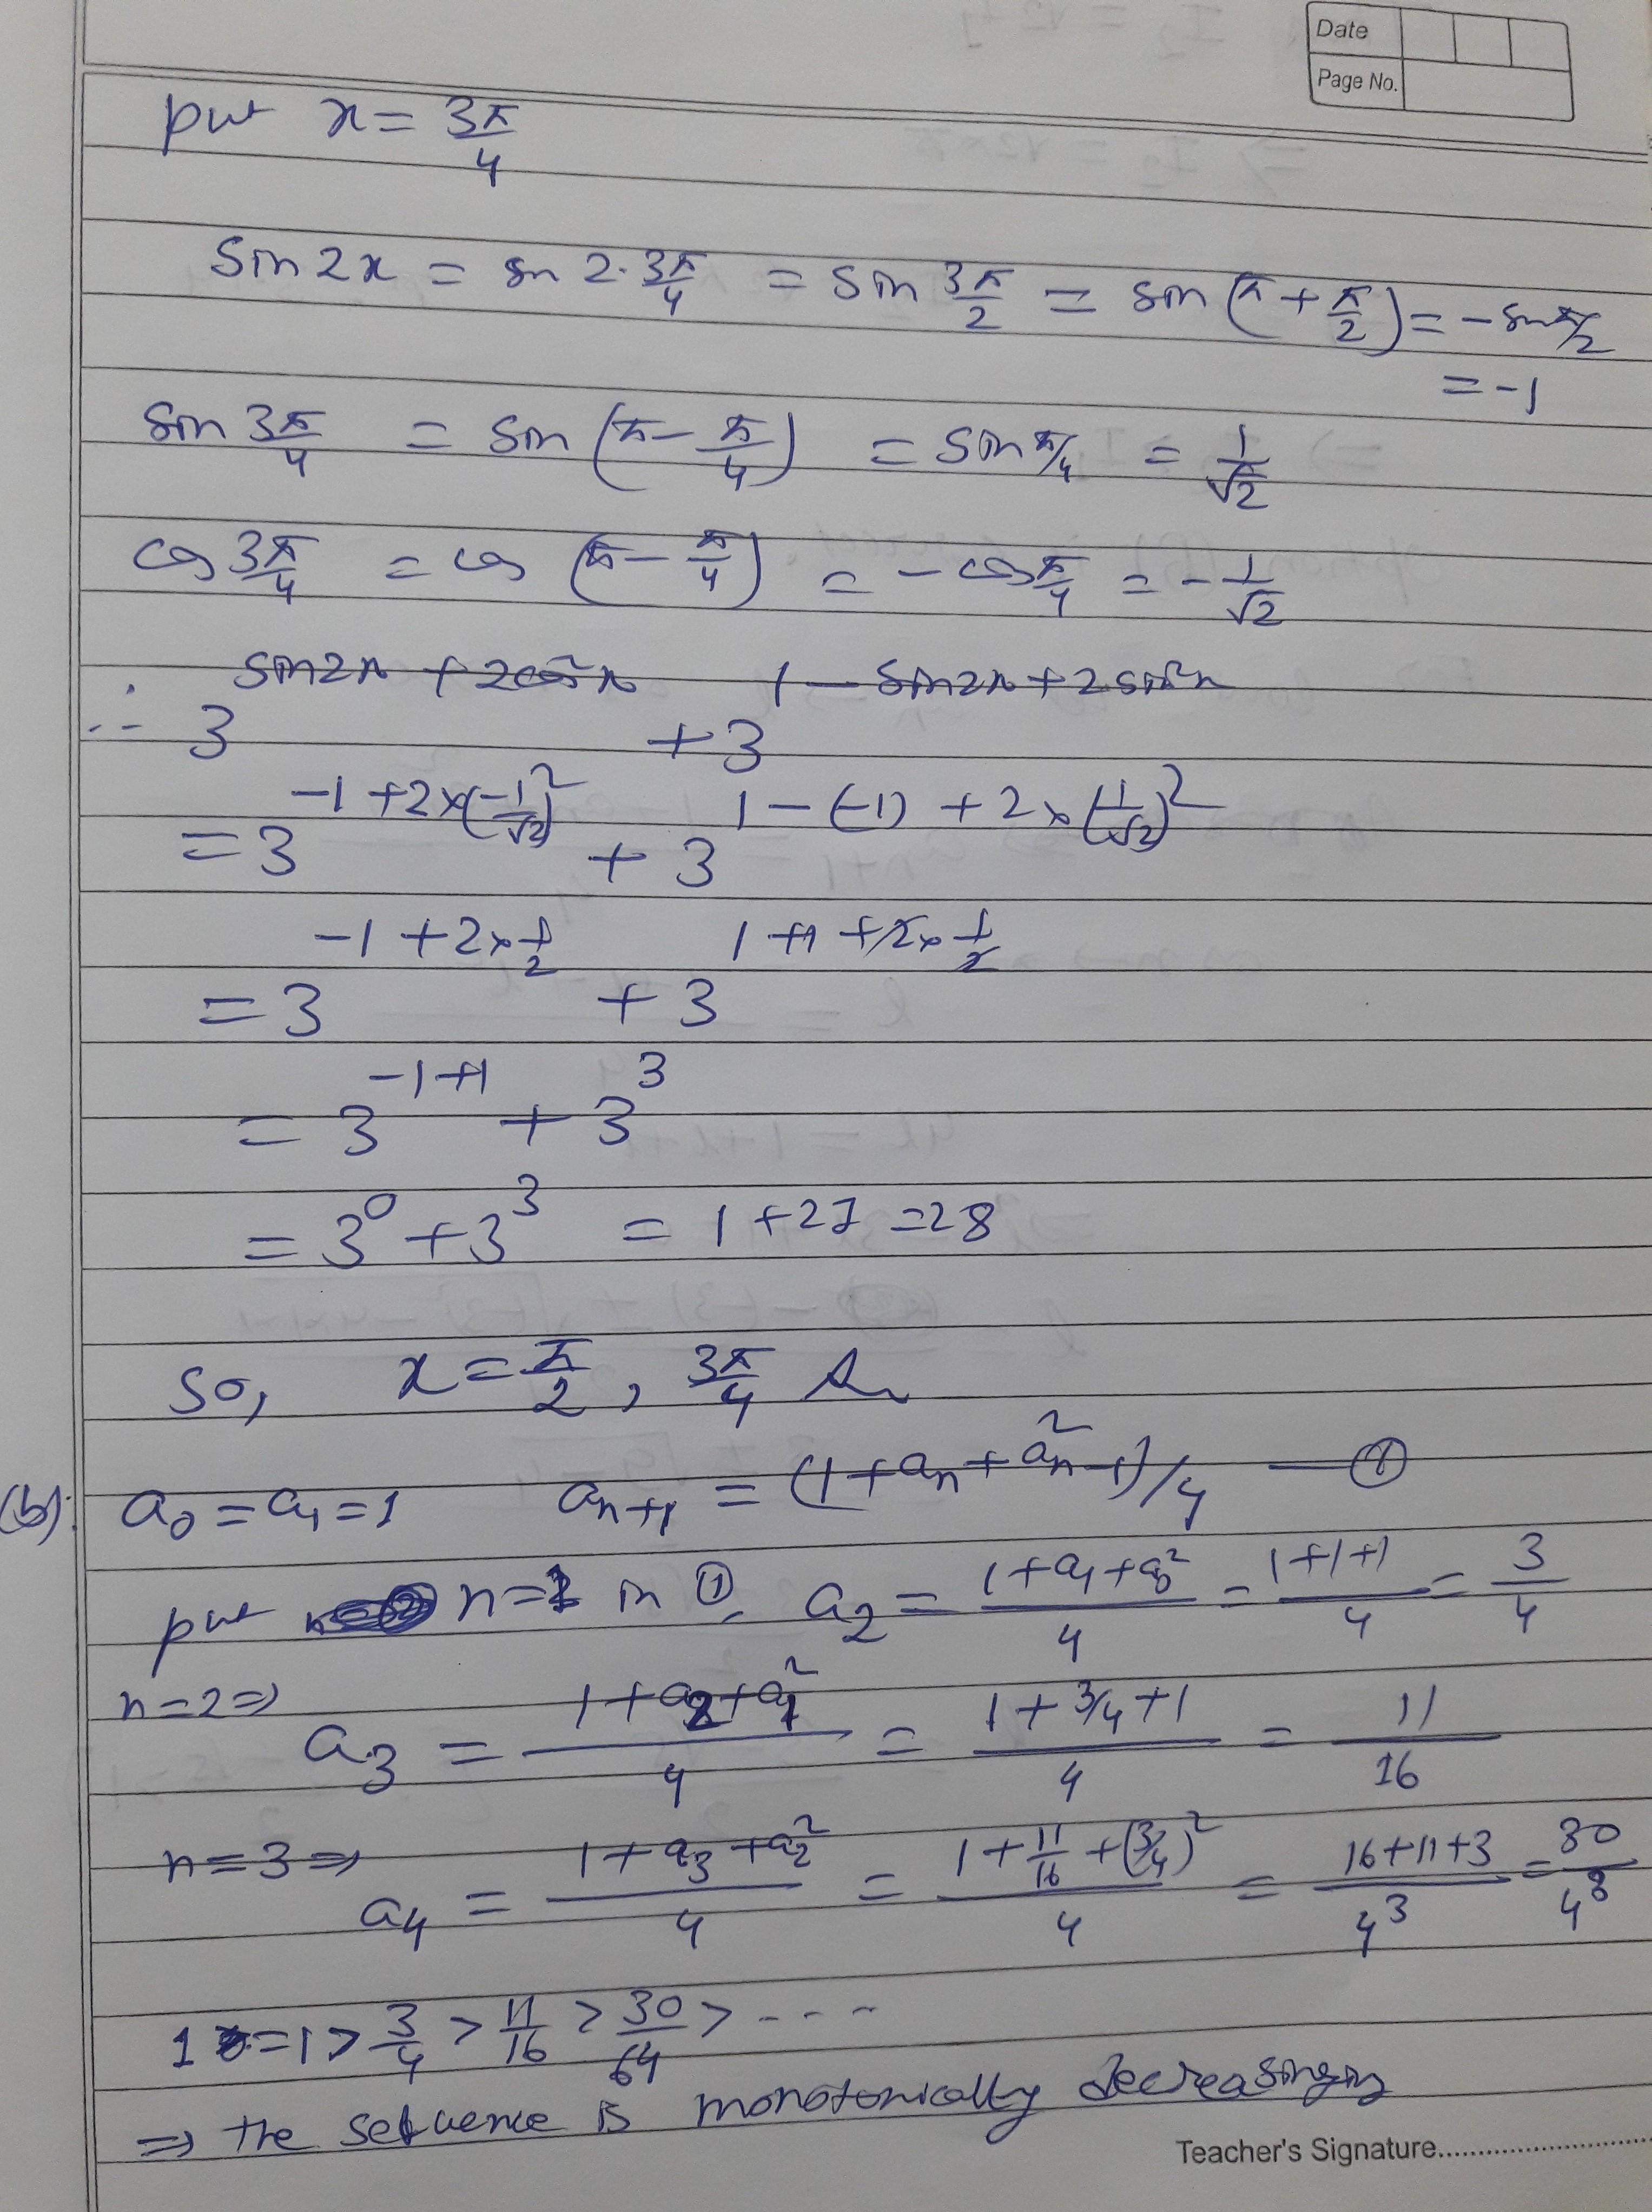 Date
Page No.
put x = 3π/4
sin 2x = sin 2·3π/4 = sin 3π/2 = sin (π + π/2) = - sin π/2
= -1
sin 3π/4 = sin (π - π/4) = sin π/4 = 1/√2
cos 3π/4 = cos (π - π/4) = - cos π/4 = - 1/√2
∴ 3^(sin2x + 2cos²x) + 3^(1 - sin2x + 2sin²x)
= 3^(-1 + 2×(-1/√2)²) + 3^(1 - (-1) + 2×(1/√2)²)
= 3^(-1 + 2×1/2) + 3^(1+1 + 2×1/2)
= 3^(-1+1) + 3^3
= 3^0 + 3^3 = 1 + 27 = 28
so, x = π/2, 3π/4
(b). a₀ = a₁ = 1 aₙ₊₁ = (1 + aₙ + a²ₙ₋₁)/4 — ①
put n=1 in ①, a₂ = (1 + a₁ + a₀²)/4 = (1+1+1)/4 = 3/4
n=2 ⇒
a₃ = (1 + a₂ + a₁²)/4 = (1 + 3/4 + 1)/4 = 11/16
n=3 ⇒
a₄ = (1 + a₃ + a₂²)/4 = (1 + 11/16 + (3/4)²)/4 = (16+11+3)/4³ = 30/4³
1 = 1 > 3/4 > 11/16 > 30/64 > ----
⇒ the sequence is monotonically decreasing
Teacher's Signature